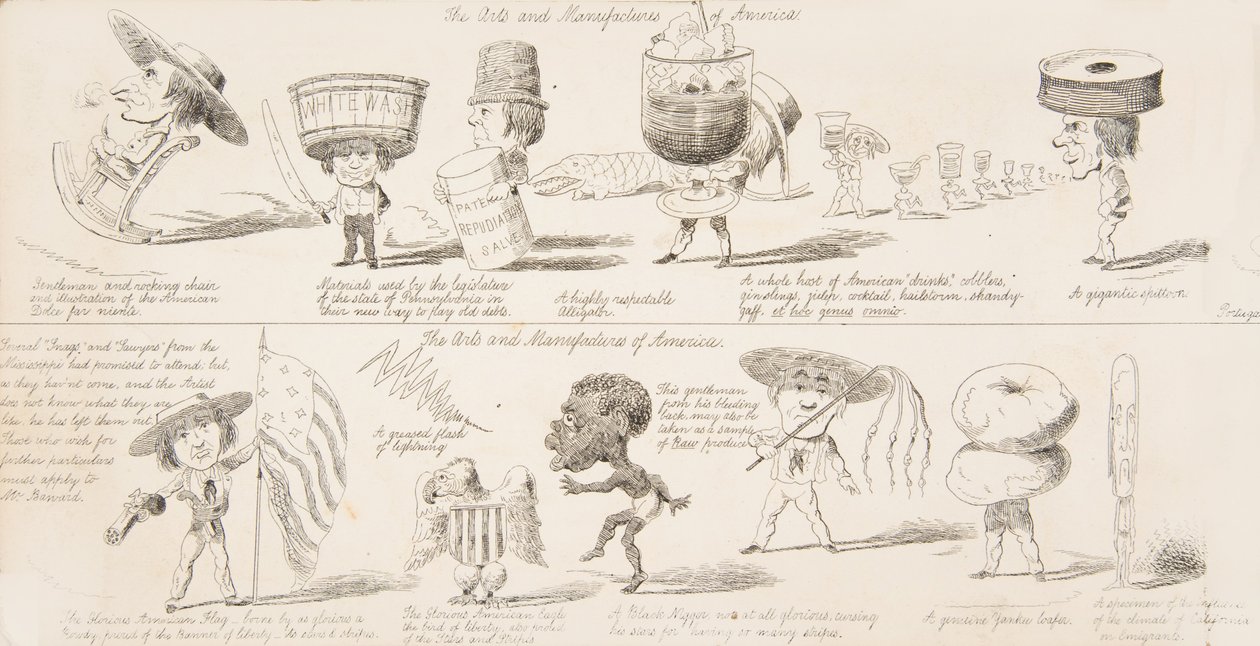 The Arts and Manufactures of America.
WHITE WASH
PATENT
REPUDIATION
SALVE
Gentleman and rocking chair
and illustration of the American
Dolce far niente.
Materials used by the legislature
of the state of Pennsylvania in
their new way to pay old debts.
A highly respectable
Alligator.
A whole host of American "drinks," cobblers,
ginslings, julep, cocktail, hailstorm, shandy-
gaff, et hoc genus omnio.
A gigantic spittoon.
Portuga
The Arts and Manufactures of America.
Several "Snags" and "Sawyers" from the
Mississippi had promised to attend; but,
as they hav'nt come, and the Artist
does not know what they are
like, he has left them out.
Those who wish for
further particulars
must apply to
Mr. Banvard.
A greased flash
of lightning
This gentleman
from his bleeding
back, may also be
taken as a sample
of Raw produce
The Glorious American Flag – borne by as glorious a
Rowdy, proud of the Banner of liberty – its stars & stripes.
The Glorious American Eagle
the bird of liberty, also proud
of the Stars and Stripes
A Black Nigger, not at all glorious, cursing
his stars for having so many stripes.
A genuine Yankee loafer.
A specimen of the influence
of the climate of California
on Emigrants.